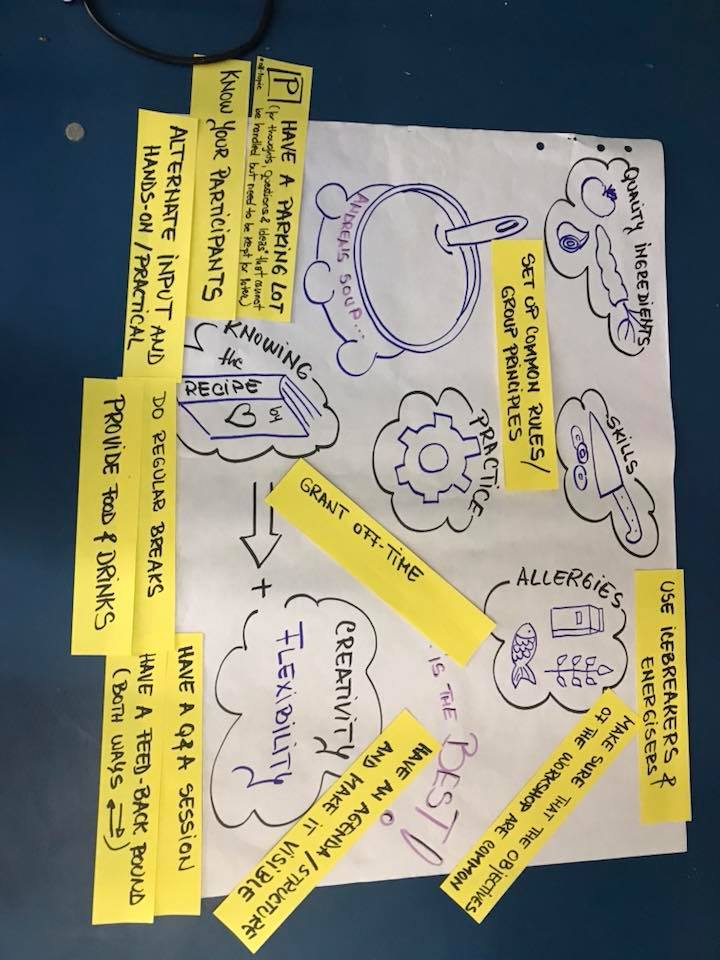 QUALITY INGREDIENTS
SKILLS
USE ICEBREAKERS &
ENERGISERS
ALLERGIES
MAKE SURE THAT THE OBJECTIVES
OF THE WORKSHOP ARE COMMON
SET UP COMMON RULES/
GROUP PRINCIPLES
PRACTICE
ANDREA'S SOUP...
... IS THE BEST!
GRANT OFF-TIME
HAVE AN AGENDA/STRUCTURE
AND MAKE IT VISIBLE
P HAVE A PARKING LOT
(for thoughts, questions & ideas that cannot
be handled but need to be kept for later)
off-topic
KNOWING
the
RECIPE
by
+
CREATIVITY
FLEXIBILITY
KNOW YOUR PARTICIPANTS
ALTERNATE INPUT AND
HANDS-ON/PRACTICAL
DO REGULAR BREAKS
PROVIDE FOOD & DRINKS
HAVE A Q&A SESSION
HAVE A FEED-BACK ROUND
(BOTH WAYS ⇄)